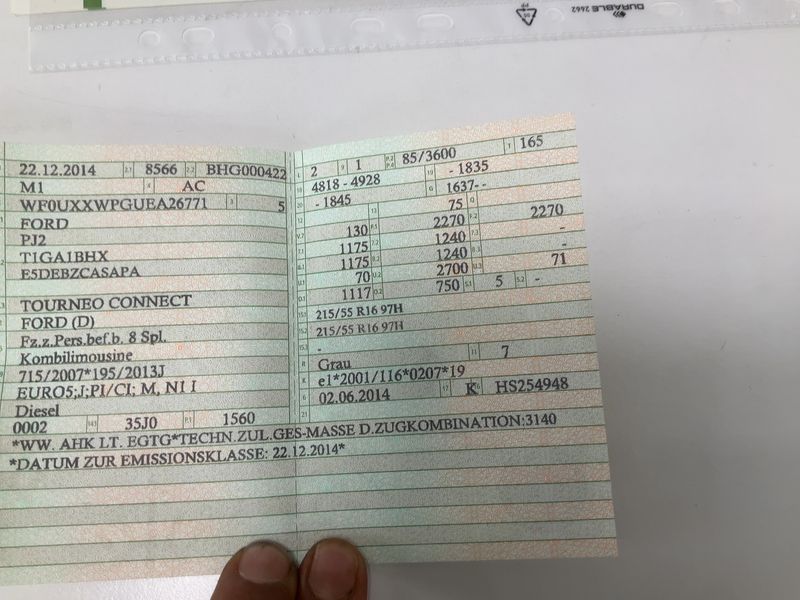 DURABLE 2442
22.12.2014 2.1 8566 2.2 BHG000422
M1 4 AC
WF0UXXWPGUEA26771 3 5
FORD
PJ2
T1GA1BHX
E5DEBZCASAPA
TOURNEO CONNECT
FORD (D)
Fz.z.Pers.bef.b. 8 Spl.
Kombilimousine
715/2007*195/2013J
EURO5;J;PI/CI; M, N1 I
Diesel
0002 14.1 35J0 P.1 1560
L 2 9 1 P.2 P.4 85/3600 T 165
18 4818 - 4928 19 - 1835
20 - 1845 G 1637--
12 75 Q
V.7 130 F.1 2270 F.2 2270
7.1 1175 7.2 1240 7.3 -
8.1 1175 8.2 1240 8.3 -
U.1 70 U.2 2700 U.3 71
O.1 1117 O.2 750 S.1 5 S.2 -
15.1 215/55 R16 97H
15.2 215/55 R16 97H
15.3 -
R Grau 11 7
K e1*2001/116*0207*19
6 02.06.2014 17 K 16 HS254948
21
*WW. AHK LT. EGTG*TECHN.ZUL.GES-MASSE D.ZUGKOMBINATION:3140
*DATUM ZUR EMISSIONSKLASSE: 22.12.2014*